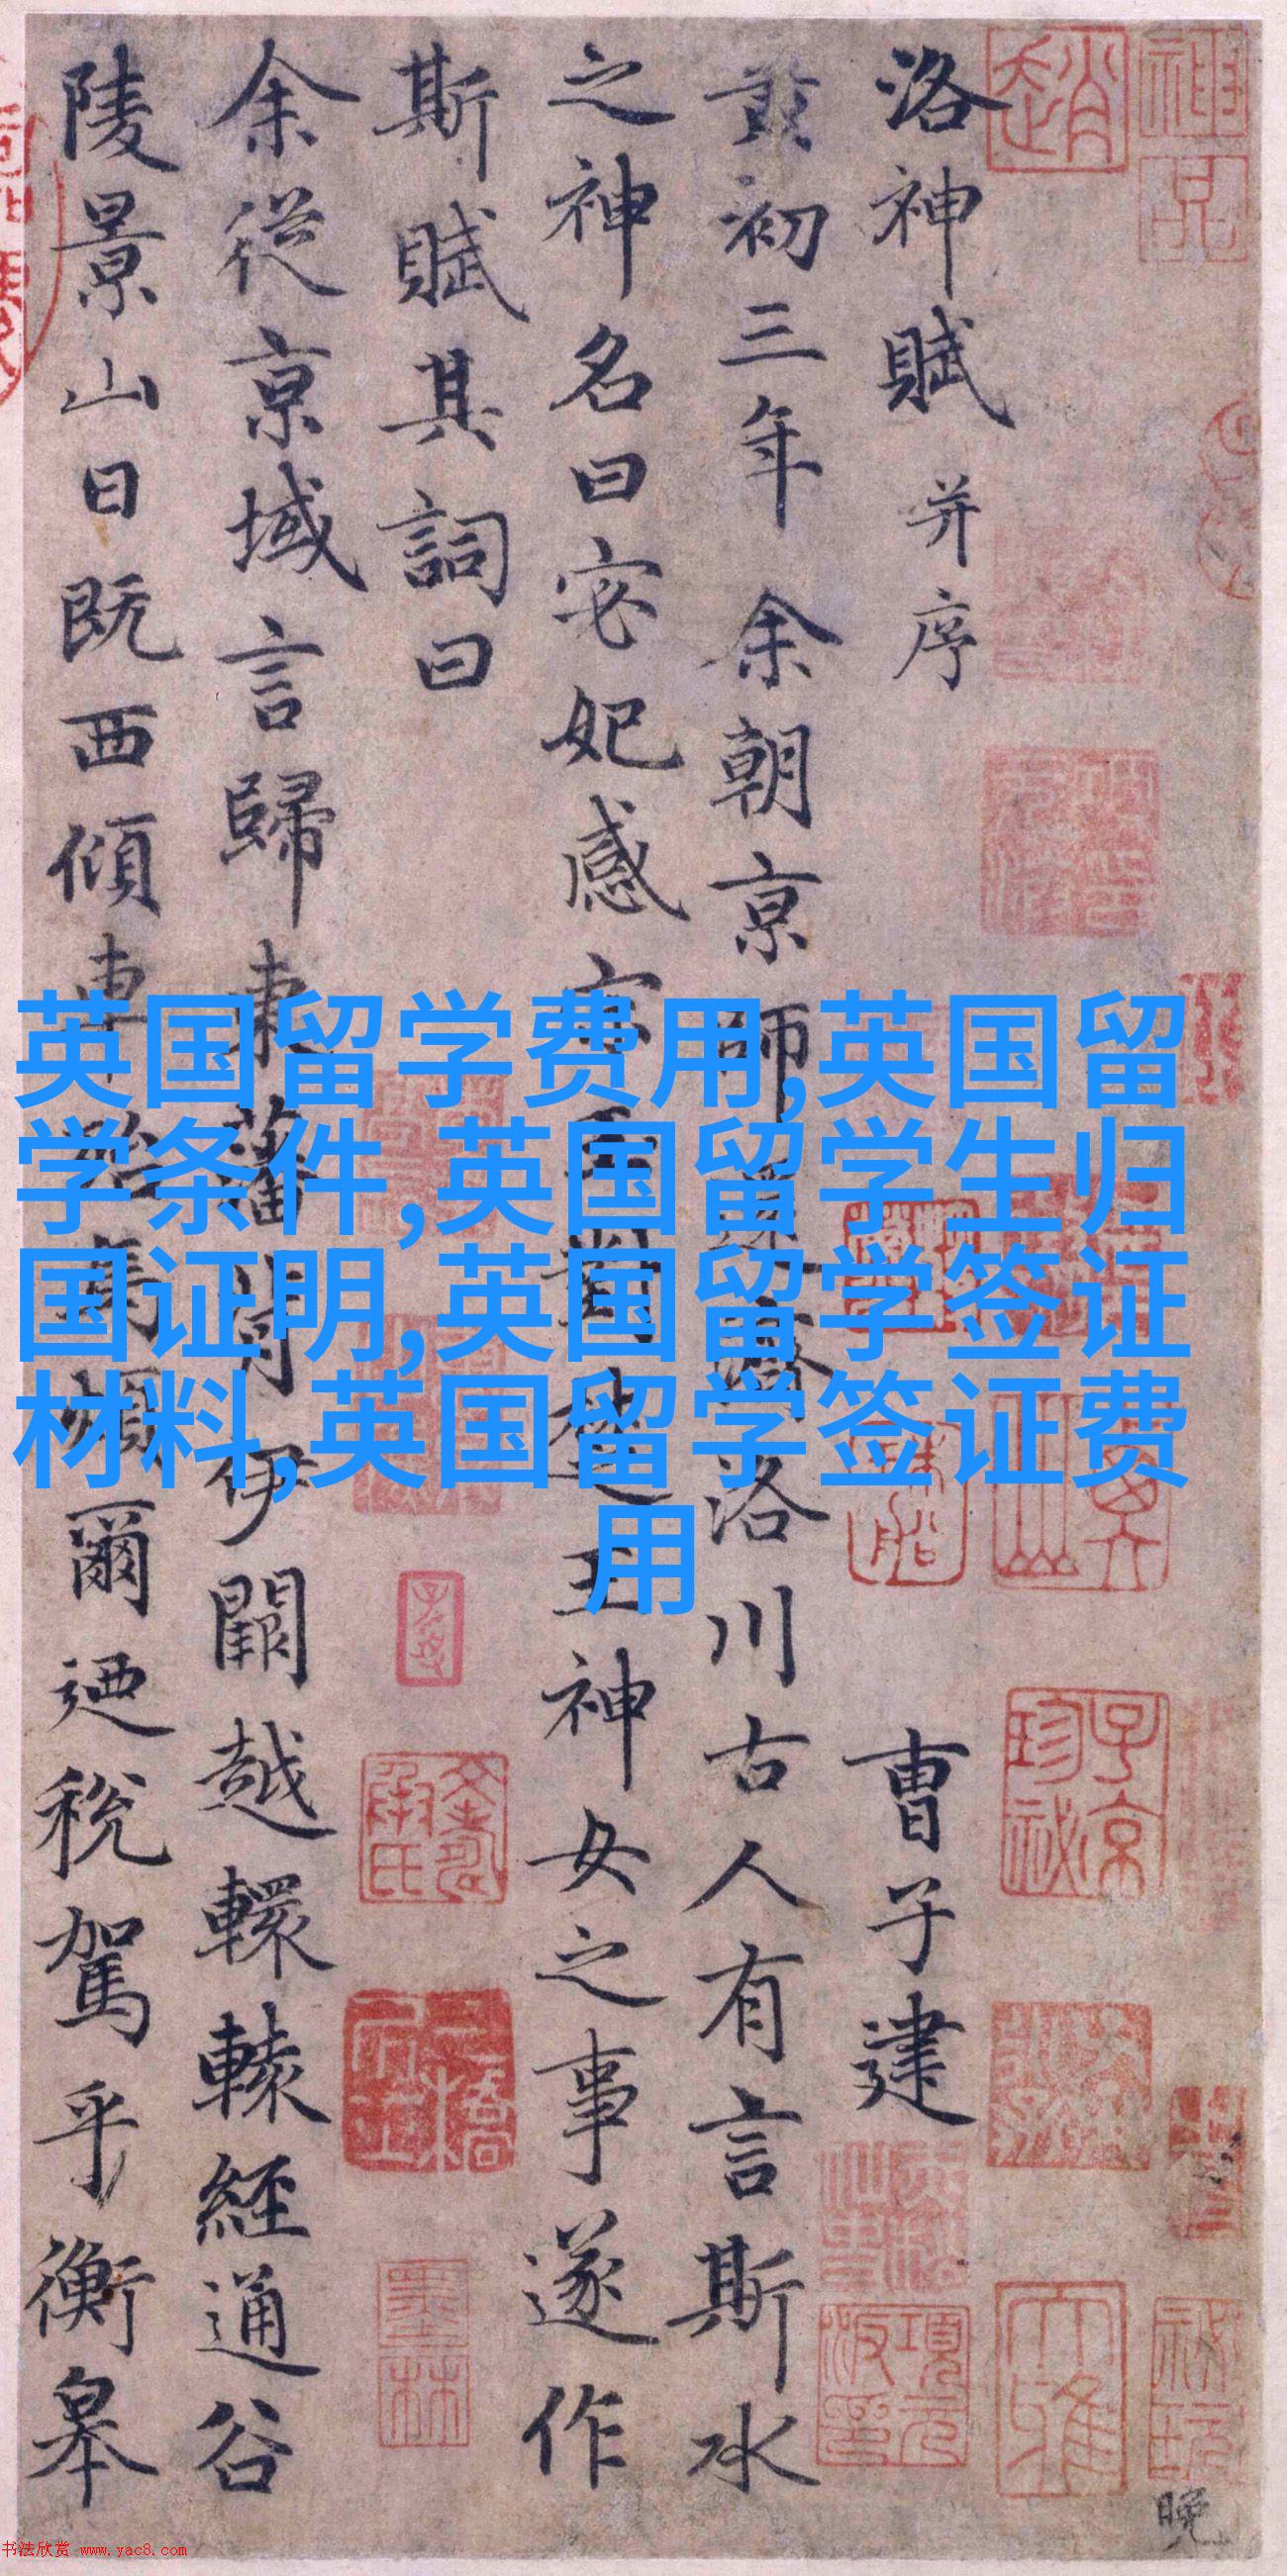 洛神賦 并序 曹子建
黃初三年余朝京師還濟洛川古人有言斯水
之神名曰宓妃感宋玉對楚王神女之事遂作
斯賦其詞曰
余從京域言歸東藩背伊闕越轘轅經通谷
陵景山日既西傾車殆馬煩爾迺稅駕乎衡皋
英国留学费用,英国留
学条件,英国留学生归
国证明,英国留学签证
材料,英国留学签证费
用
神品
趙
子京珍祕
項元汴印
墨林
晚
书法欣赏 www.yac8.com